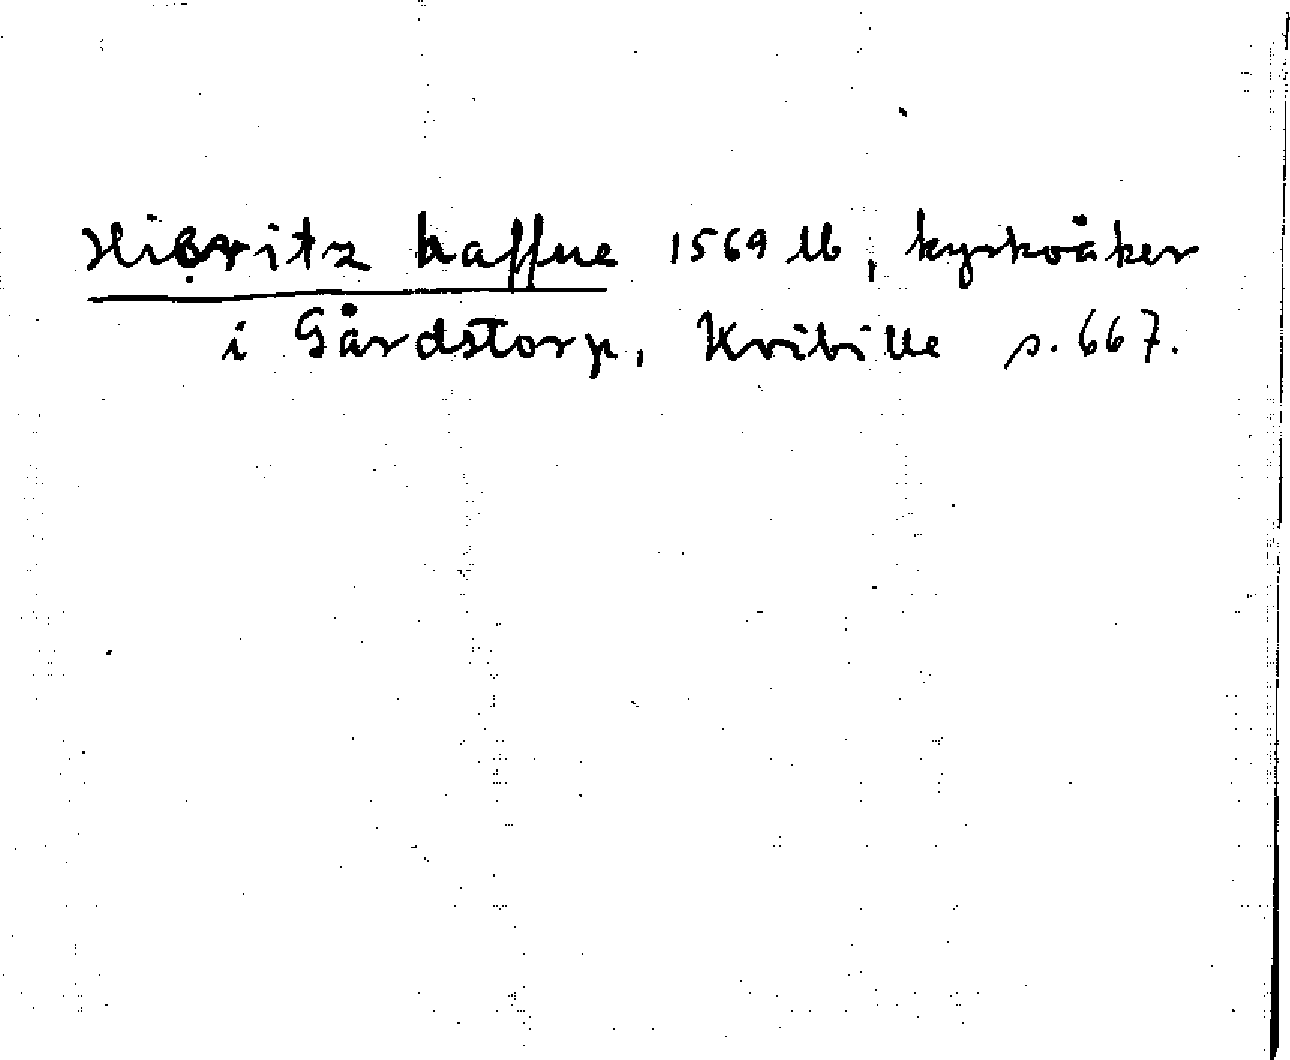 Hiøritz haffue 1569 lb, kyrkoåker
i Gårdstorp, Kvibille s. 667.